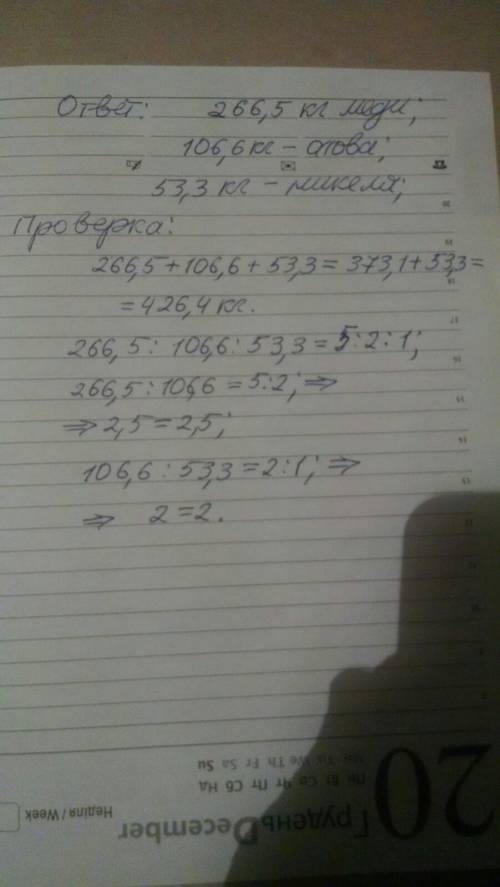 Ответ: 266,5 кг меди;
106,6 кг – олова;
53,3 кг – никеля;
Проверка:
266,5 + 106,6 + 53,3 = 373,1 + 53,3 =
= 426,4 кг.
266,5 : 106,6 : 53,3 = 5 : 2 : 1;
266,5 : 106,6 = 5 : 2; ⇒
⇒ 2,5 = 2,5;
106,6 : 53,3 = 2 : 1; ⇒
⇒ 2 = 2.
20
Mo Tu We Th Fr Sa Su
Пн Вт Ср Чт Пт Сб Нд
Грудень December
Неділя / Week